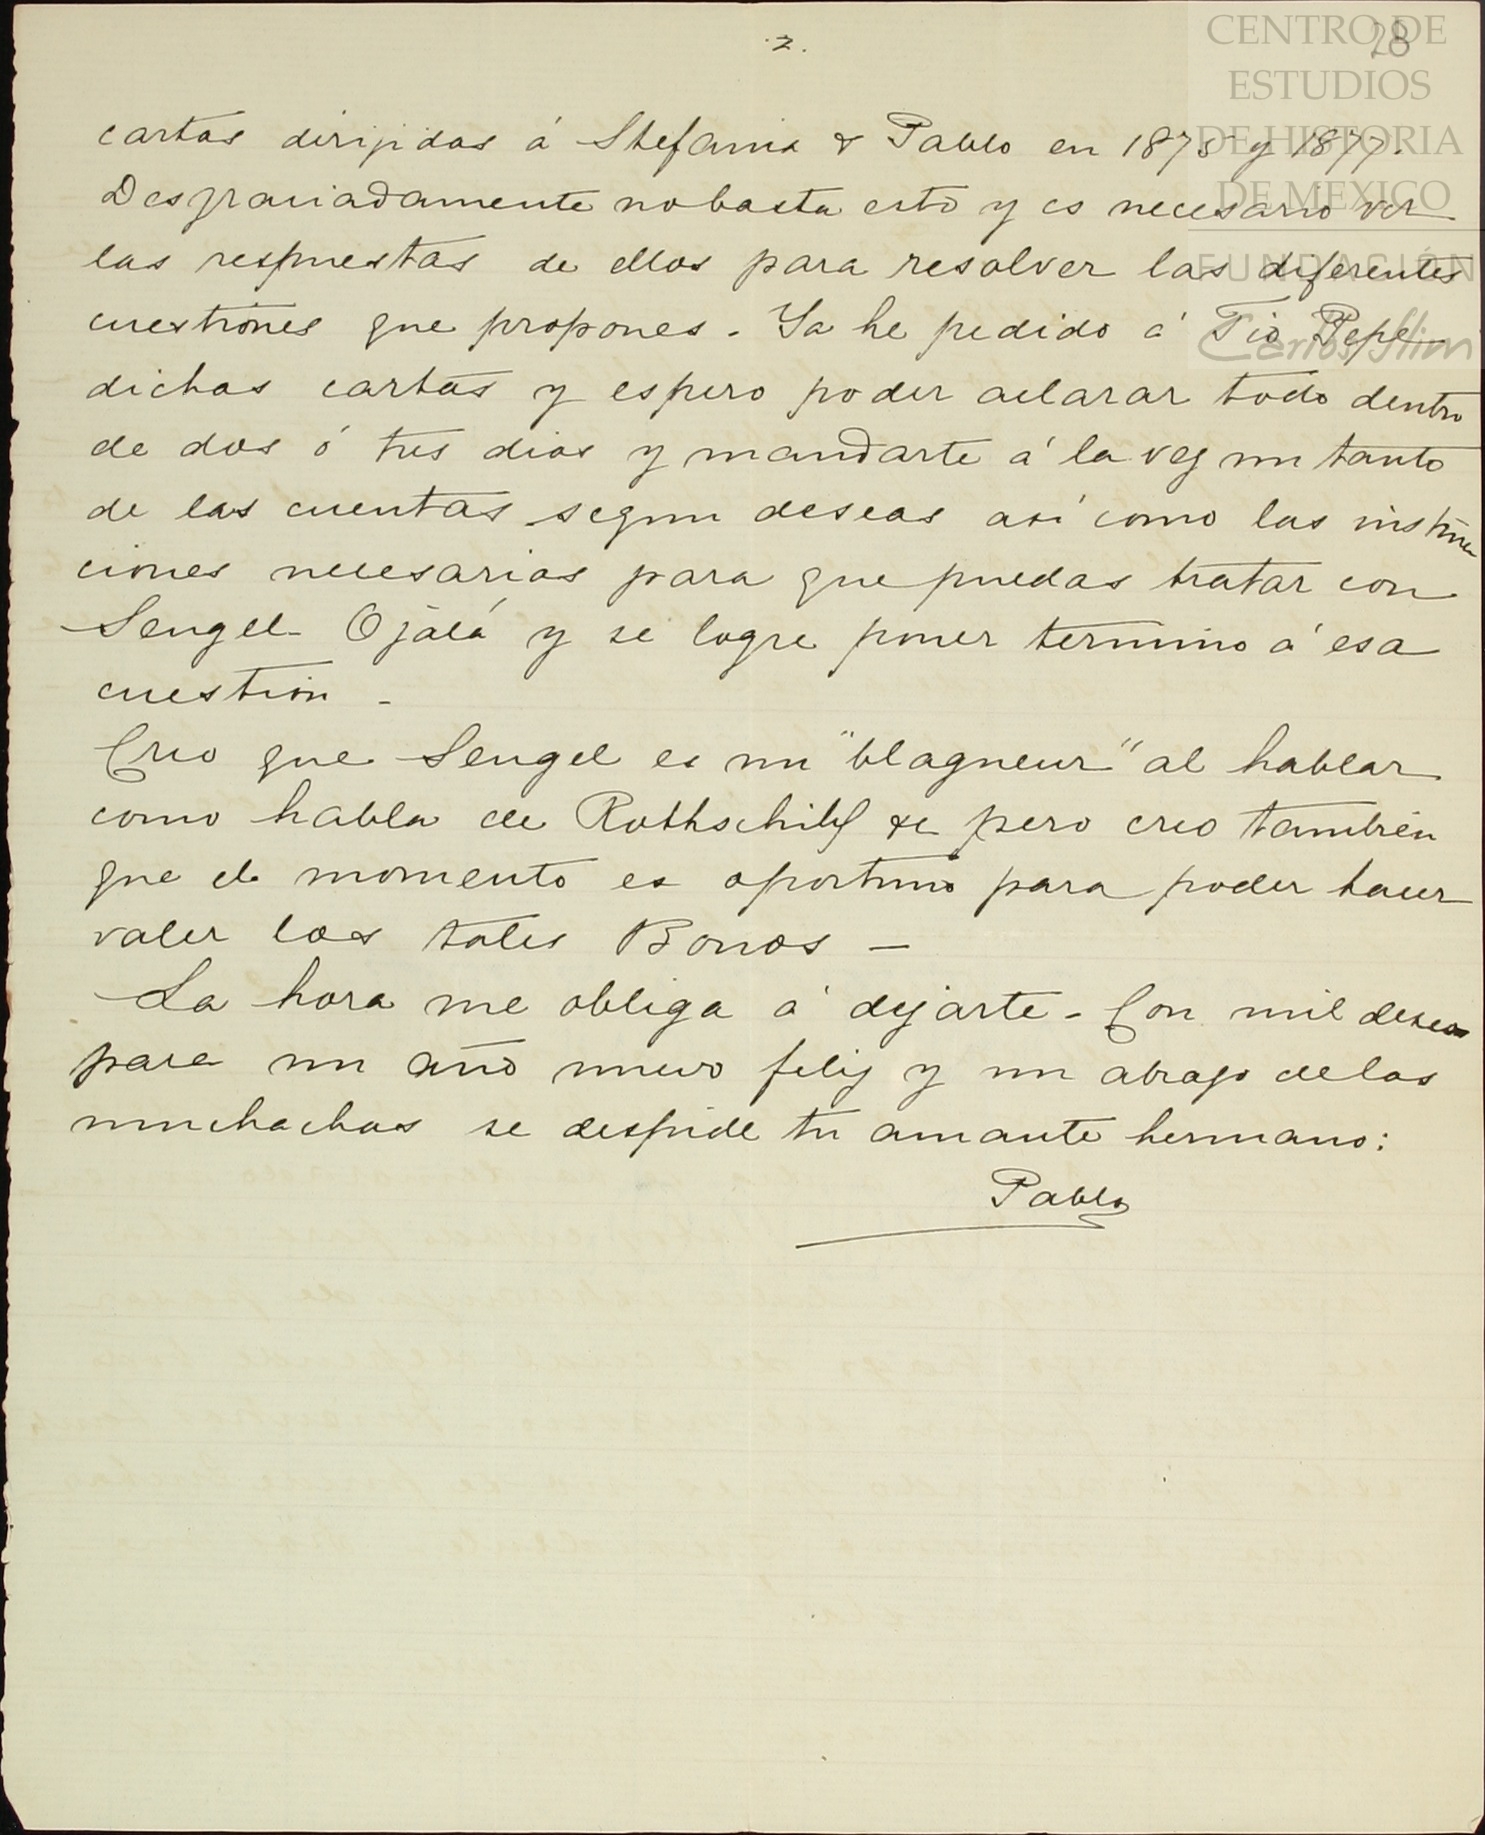 .2.
28
CENTRO DE
ESTUDIOS
DE HISTORIA
DE MEXICO
FUNDACIÓN
Carlos Slim
cartas dirijidas á Stefania & Pablo en 1875 y 1877.
Desgraciadamente no basta esto y es necesario ver
las respuestas de ellos para resolver las diferentes
cuestiones que propones - Ya he pedido á Tio Pepe
dichas cartas y espero poder aclarar todo dentro
de dos ó tres dias y mandarte á la vez un tanto
de las cuentas segun deseas asi como las instruc
ciones necesarias para que puedas tratar con
Sengel - Ojalá y se logre poner termino á esa
cuestion -
Creo que Sengel es un "blagueur" al hablar
como habla de Rothschild &c pero creo tambien
que el momento es oportuno para poder hacer
valer los tales Bonos -
La hora me obliga á dejarte - Con mil deseos
para un año nuevo feliz y un abrazo de las
muchachas se despide tu amante hermano:
Pablo